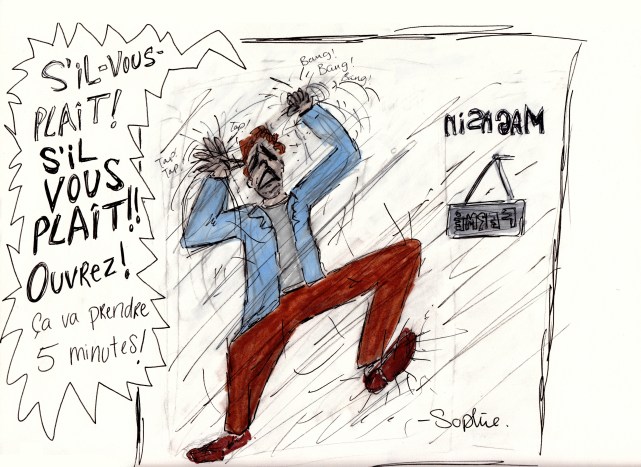 S'IL-VOUS-
PLAÎT!
S'IL
VOUS
PLAÎT!!
OUVREZ!
Ça va prendre
5 minutes!
Bang!
Bang!
Bang!
Tap!
Tap!
Tap!
MAGASIN
FERMÉ
-Sophie.